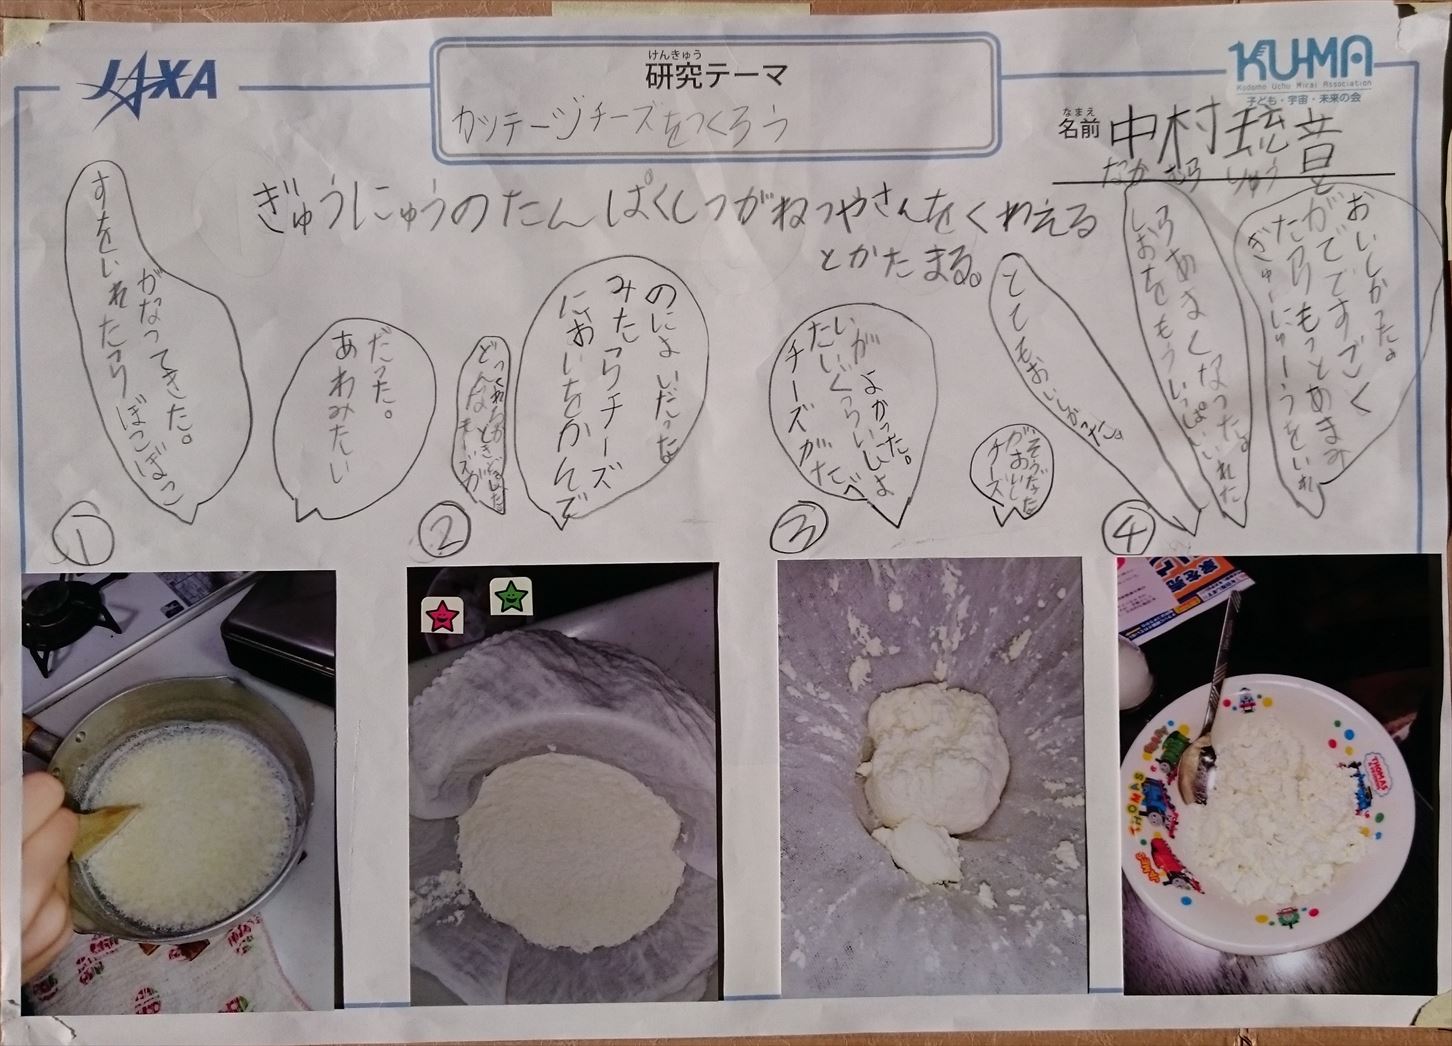 JAXA
けんきゅう
研究テーマ
カッテージチーズをつくろう
KUMA
Kodomo Uchu Mirai Association
子ども・宇宙・未来の会
なまえ
名前
中村琉音
なかむら りゅうと
ぎゅうにゅうのたんぱくしつがねつやさんをくわえる
とかたまる。
すをいれたらぼこぼこ
がなってきた。
あわみたい
だった。
どんなチーズが
においをかんで
みたらチーズ
のにおいだった。
チーズがたべ
たいくらいいい
がよかった。
チーズ
がおいし
そうだった
とてもおいしかった。
しおをもういっぱいいれた
らあまくなったよ。
ぎゅーにゅーうをいれ
たらもっとあまみ
がでてすごく
おいしかった。
①
②
③
④
THOMAS
THOMAS
JAMES
PERCY